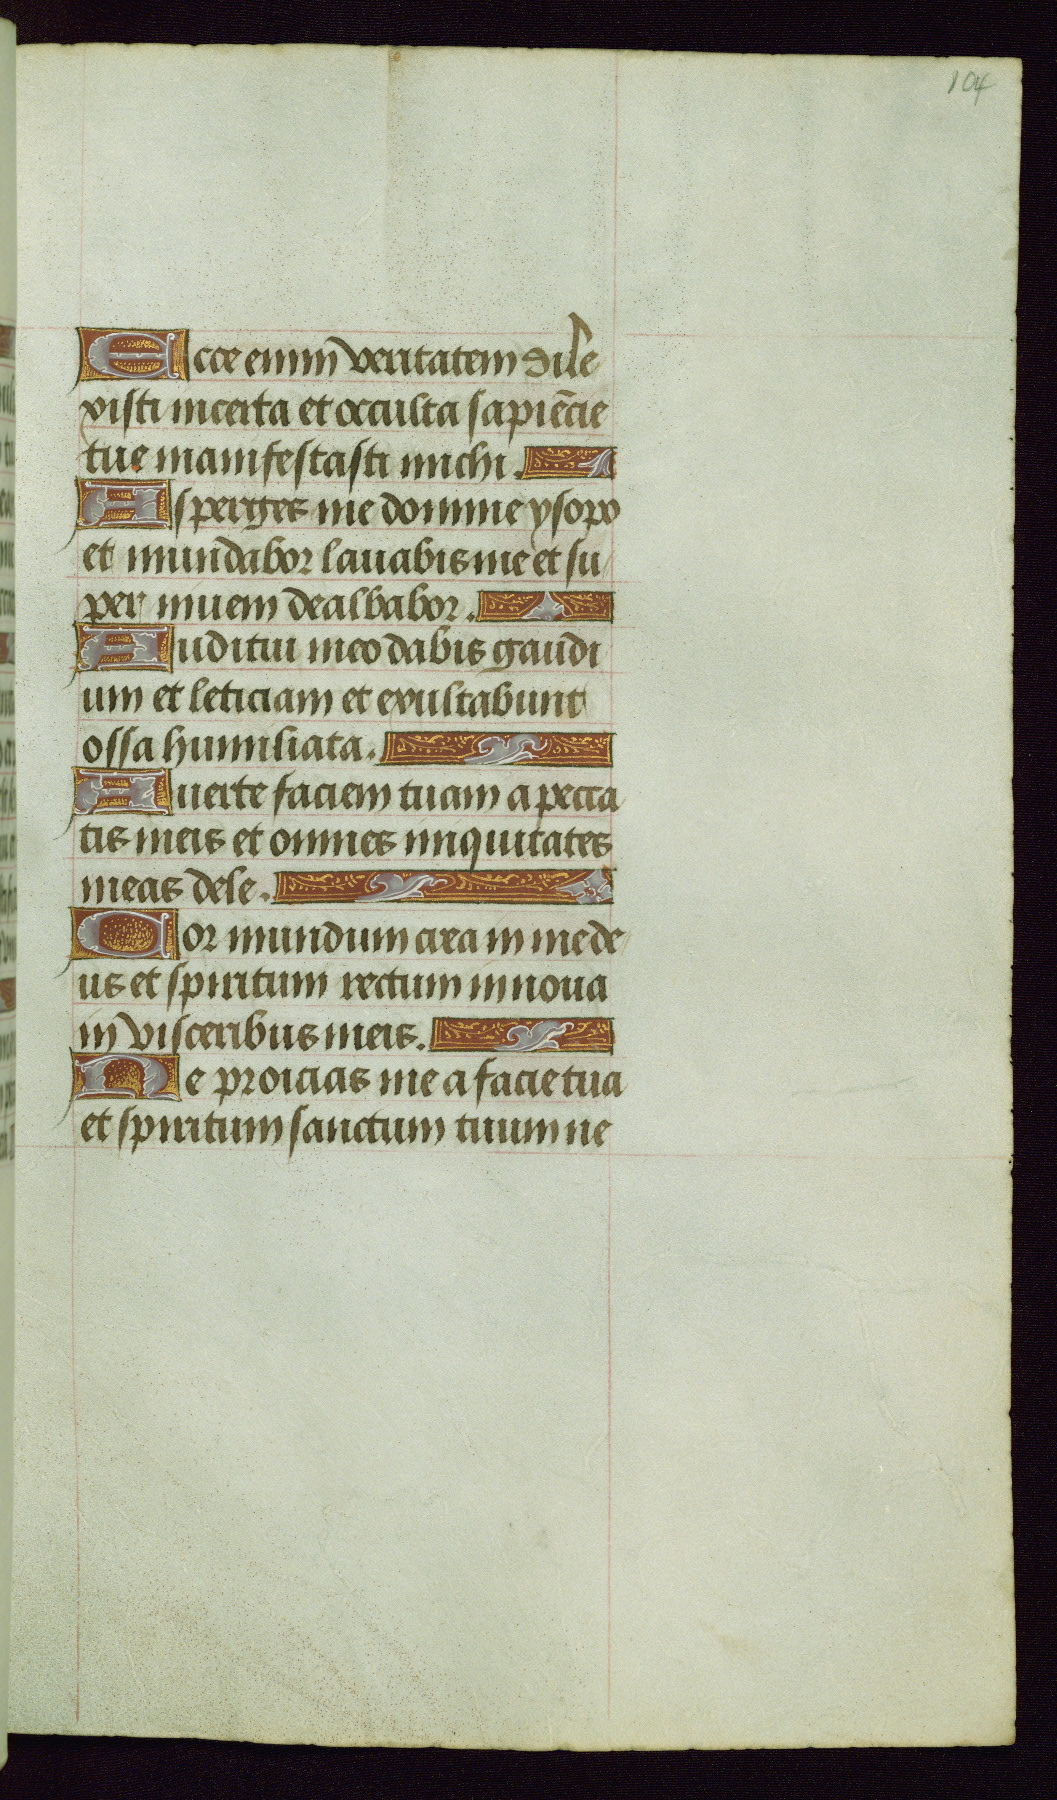 104
Ecce enim veritatem dile
visti incerta et occulta sapiēcie
tue manifestasti michi.
Asperges me domine ysopo
et mundabor lavabis me et su
per nivem dealbabor.
Auditui meo dabis gaudi
um et leticiam et exultabunt
ossa humiliata.
Averte faciem tuam a pecca
tis meis et omnes iniquitates
meas dele.
Cor mundum crea in me de
us et spiritum rectum innova
in visceribus meis.
Ne proicias me a facie tua
et spiritum sanctum tuum ne